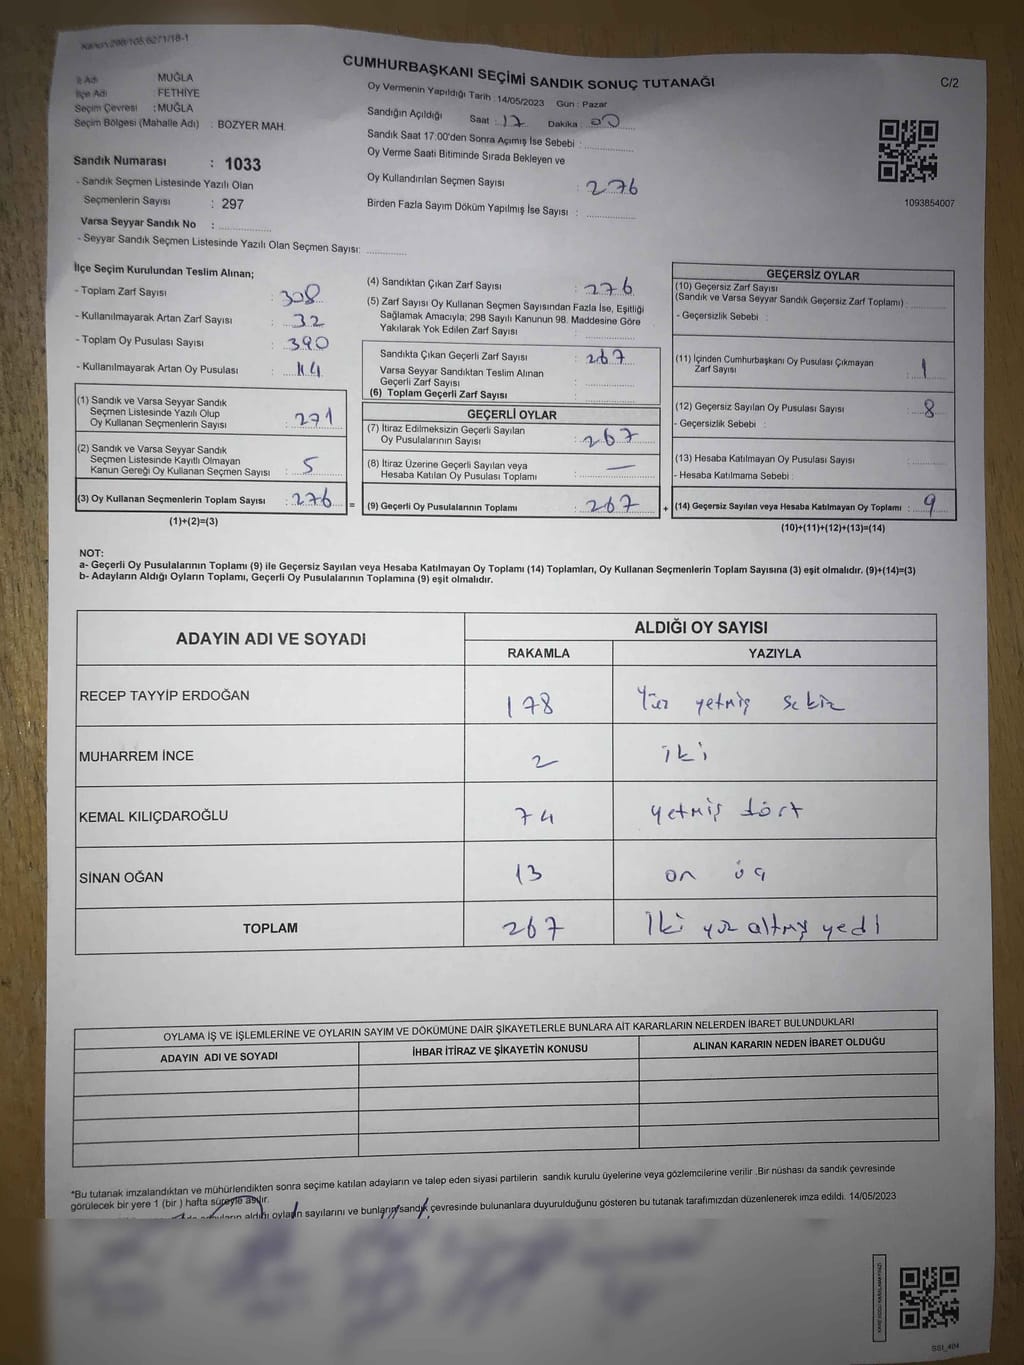 Kanun/298/105/6271/18-1
CUMHURBAŞKANI SEÇİMİ SANDIK SONUÇ TUTANAĞI
C/2
İl Adı : MUĞLA
İlçe Adı : FETHİYE
Seçim Çevresi : MUĞLA
Seçim Bölgesi (Mahalle Adı) : BOZYER MAH.
Oy Vermenin Yapıldığı Tarih : 14/05/2023 Gün : Pazar
Sandığın Açıldığı Saat : 17 Dakika : 00
Sandık Saat 17.00'den Sonra Açımış İse Sebebi :
Oy Verme Saati Bitiminde Sırada Bekleyen ve
Oy Kullandırılan Seçmen Sayısı : 276
Birden Fazla Sayım Döküm Yapılmış İse Sayısı :
1093854007
Sandık Numarası : 1033
- Sandık Seçmen Listesinde Yazılı Olan
Seçmenlerin Sayısı : 297
Varsa Seyyar Sandık No :
- Seyyar Sandık Seçmen Listesinde Yazılı Olan Seçmen Sayısı:
İlçe Seçim Kurulundan Teslim Alınan;
- Toplam Zarf Sayısı : 308
- Kullanılmayarak Artan Zarf Sayısı : 32
- Toplam Oy Pusulası Sayısı : 390
- Kullanılmayarak Artan Oy Pusulası : 114
(1) Sandık ve Varsa Seyyar Sandık
Seçmen Listesinde Yazılı Olup
Oy Kullanan Seçmenlerin Sayısı : 271
(2) Sandık ve Varsa Seyyar Sandık
Seçmen Listesinde Kayıtlı Olmayan
Kanun Gereği Oy Kullanan Seçmen Sayısı : 5
(3) Oy Kullanan Seçmenlerin Toplam Sayısı : 276 =
(1)+(2)=(3)
(4) Sandıktan Çıkan Zarf Sayısı : 276
(5) Zarf Sayısı Oy Kullanan Seçmen Sayısından Fazla İse, Eşitliği
Sağlamak Amacıyla; 298 Sayılı Kanunun 98. Maddesine Göre
Yakılarak Yok Edilen Zarf Sayısı :
Sandıkta Çıkan Geçerli Zarf Sayısı : 267
Varsa Seyyar Sandıktan Teslim Alınan
Geçerli Zarf Sayısı :
(6) Toplam Geçerli Zarf Sayısı :
GEÇERLİ OYLAR
(7) İtiraz Edilmeksizin Geçerli Sayılan
Oy Pusulalarının Sayısı : 267
(8) İtiraz Üzerine Geçerli Sayılan veya
Hesaba Katılan Oy Pusulası Toplamı : —
(9) Geçerli Oy Pusulalarının Toplamı : 267 +
GEÇERSİZ OYLAR
(10) Geçersiz Zarf Sayısı
(Sandık ve Varsa Seyyar Sandık Geçersiz Zarf Toplamı) :
- Geçersizlik Sebebi :
(11) İçinden Cumhurbaşkanı Oy Pusulası Çıkmayan
Zarf Sayısı : 1
(12) Geçersiz Sayılan Oy Pusulası Sayısı : 8
- Geçersizlik Sebebi :
(13) Hesaba Katılmayan Oy Pusulası Sayısı :
- Hesaba Katılmama Sebebi :
(14) Geçersiz Sayılan veya Hesaba Katılmayan Oy Toplamı : 9
(10)+(11)+(12)+(13)=(14)
NOT:
a- Geçerli Oy Pusulalarının Toplamı (9) ile Geçersiz Sayılan veya Hesaba Katılmayan Oy Toplamı (14) Toplamları, Oy Kullanan Seçmenlerin Toplam Sayısına (3) eşit olmalıdır. (9)+(14)=(3)
b- Adayların Aldığı Oyların Toplamı, Geçerli Oy Pusulalarının Toplamına (9) eşit olmalıdır.
ADAYIN ADI VE SOYADI
ALDIĞI OY SAYISI
RAKAMLA YAZIYLA
RECEP TAYYİP ERDOĞAN 178 Yüz yetmiş sekiz
MUHARREM İNCE 2 iki
KEMAL KILIÇDAROĞLU 74 yetmiş dört
SİNAN OĞAN 13 on üç
TOPLAM 267 İki yüz altmış yedi
OYLAMA İŞ VE İŞLEMLERİNE VE OYLARIN SAYIM VE DÖKÜMÜNE DAİR ŞİKAYETLERLE BUNLARA AİT KARARLARIN NELERDEN İBARET BULUNDUKLARI
ADAYIN ADI VE SOYADI İHBAR İTİRAZ VE ŞİKAYETİN KONUSU ALINAN KARARIN NEDEN İBARET OLDUĞU
*Bu tutanak imzalandıktan ve mühürlendikten sonra seçime katılan adayların ve talep eden siyasi partilerin sandık kurulu üyelerine veya gözlemcilerine verilir .Bir nüshası da sandık çevresinde
görülecek bir yere 1 (bir ) hafta süreyle asılır.
aldığı oyların sayılarını ve bunların sandık çevresinde bulunanlara duyurulduğunu gösteren bu tutanak tarafımızdan düzenlenerek imza edildi. 14/05/2023